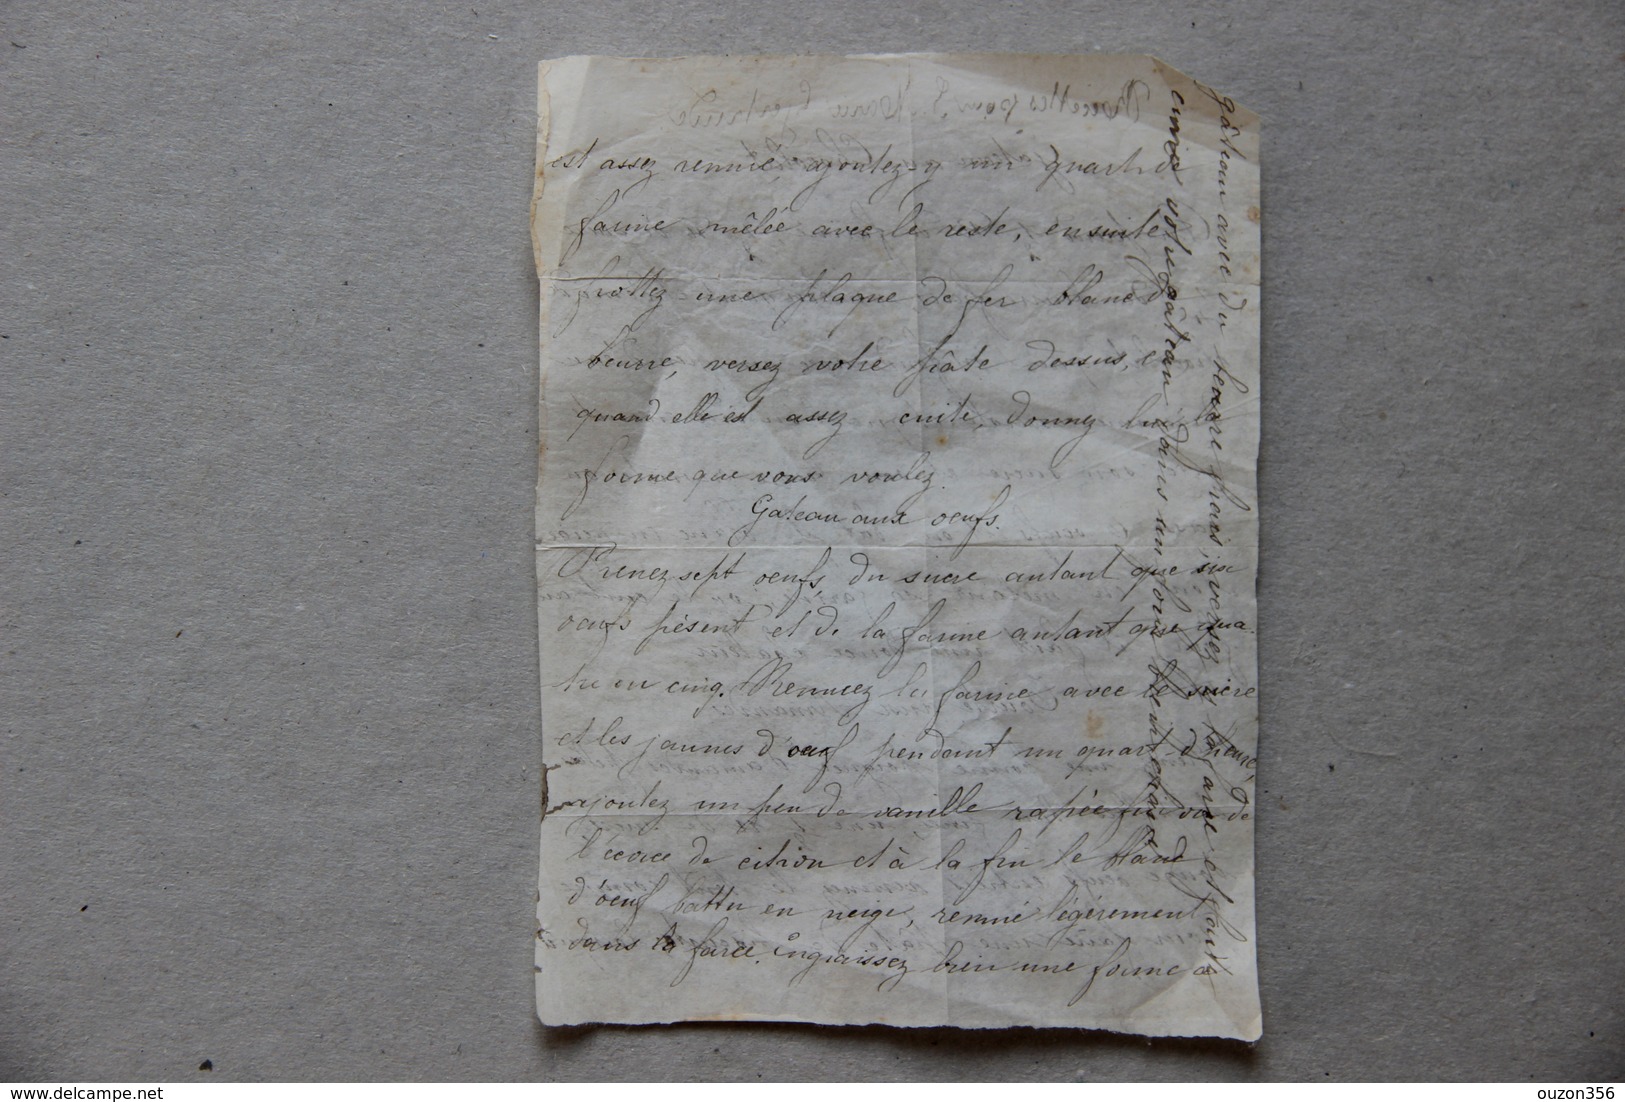 est assez remué, ajoutez-y un quart de
farine mêlée avec le reste, ensuite
frottez une plaque de fer blanc d
beurre, versez votre pâte dessus, e
quand elle est assez cuite, donnez lui la
forme que vous voulez.
Gateau aux oeufs.
Prenez sept oeufs, du sucre autant que six
oeufs pèsent et de la farine autant que qua-
tre ou cinq. Remuez la farine avec le sucre
et les jaunes d'oeuf pendant un quart d'heure,
ajoutez un peu de vanille rapée fin ou de
l'écorce de citron et à la fin le blanc
d'oeuf battu en neige, remué légèrement
dans la farce. Engraissez bien une forme à
gâteau avec du beurre frais, versez y la farce et faites
cuire votre gâteau dans un four bien chaud.
Recettes pour S. Marie Gertrude
ouzon356